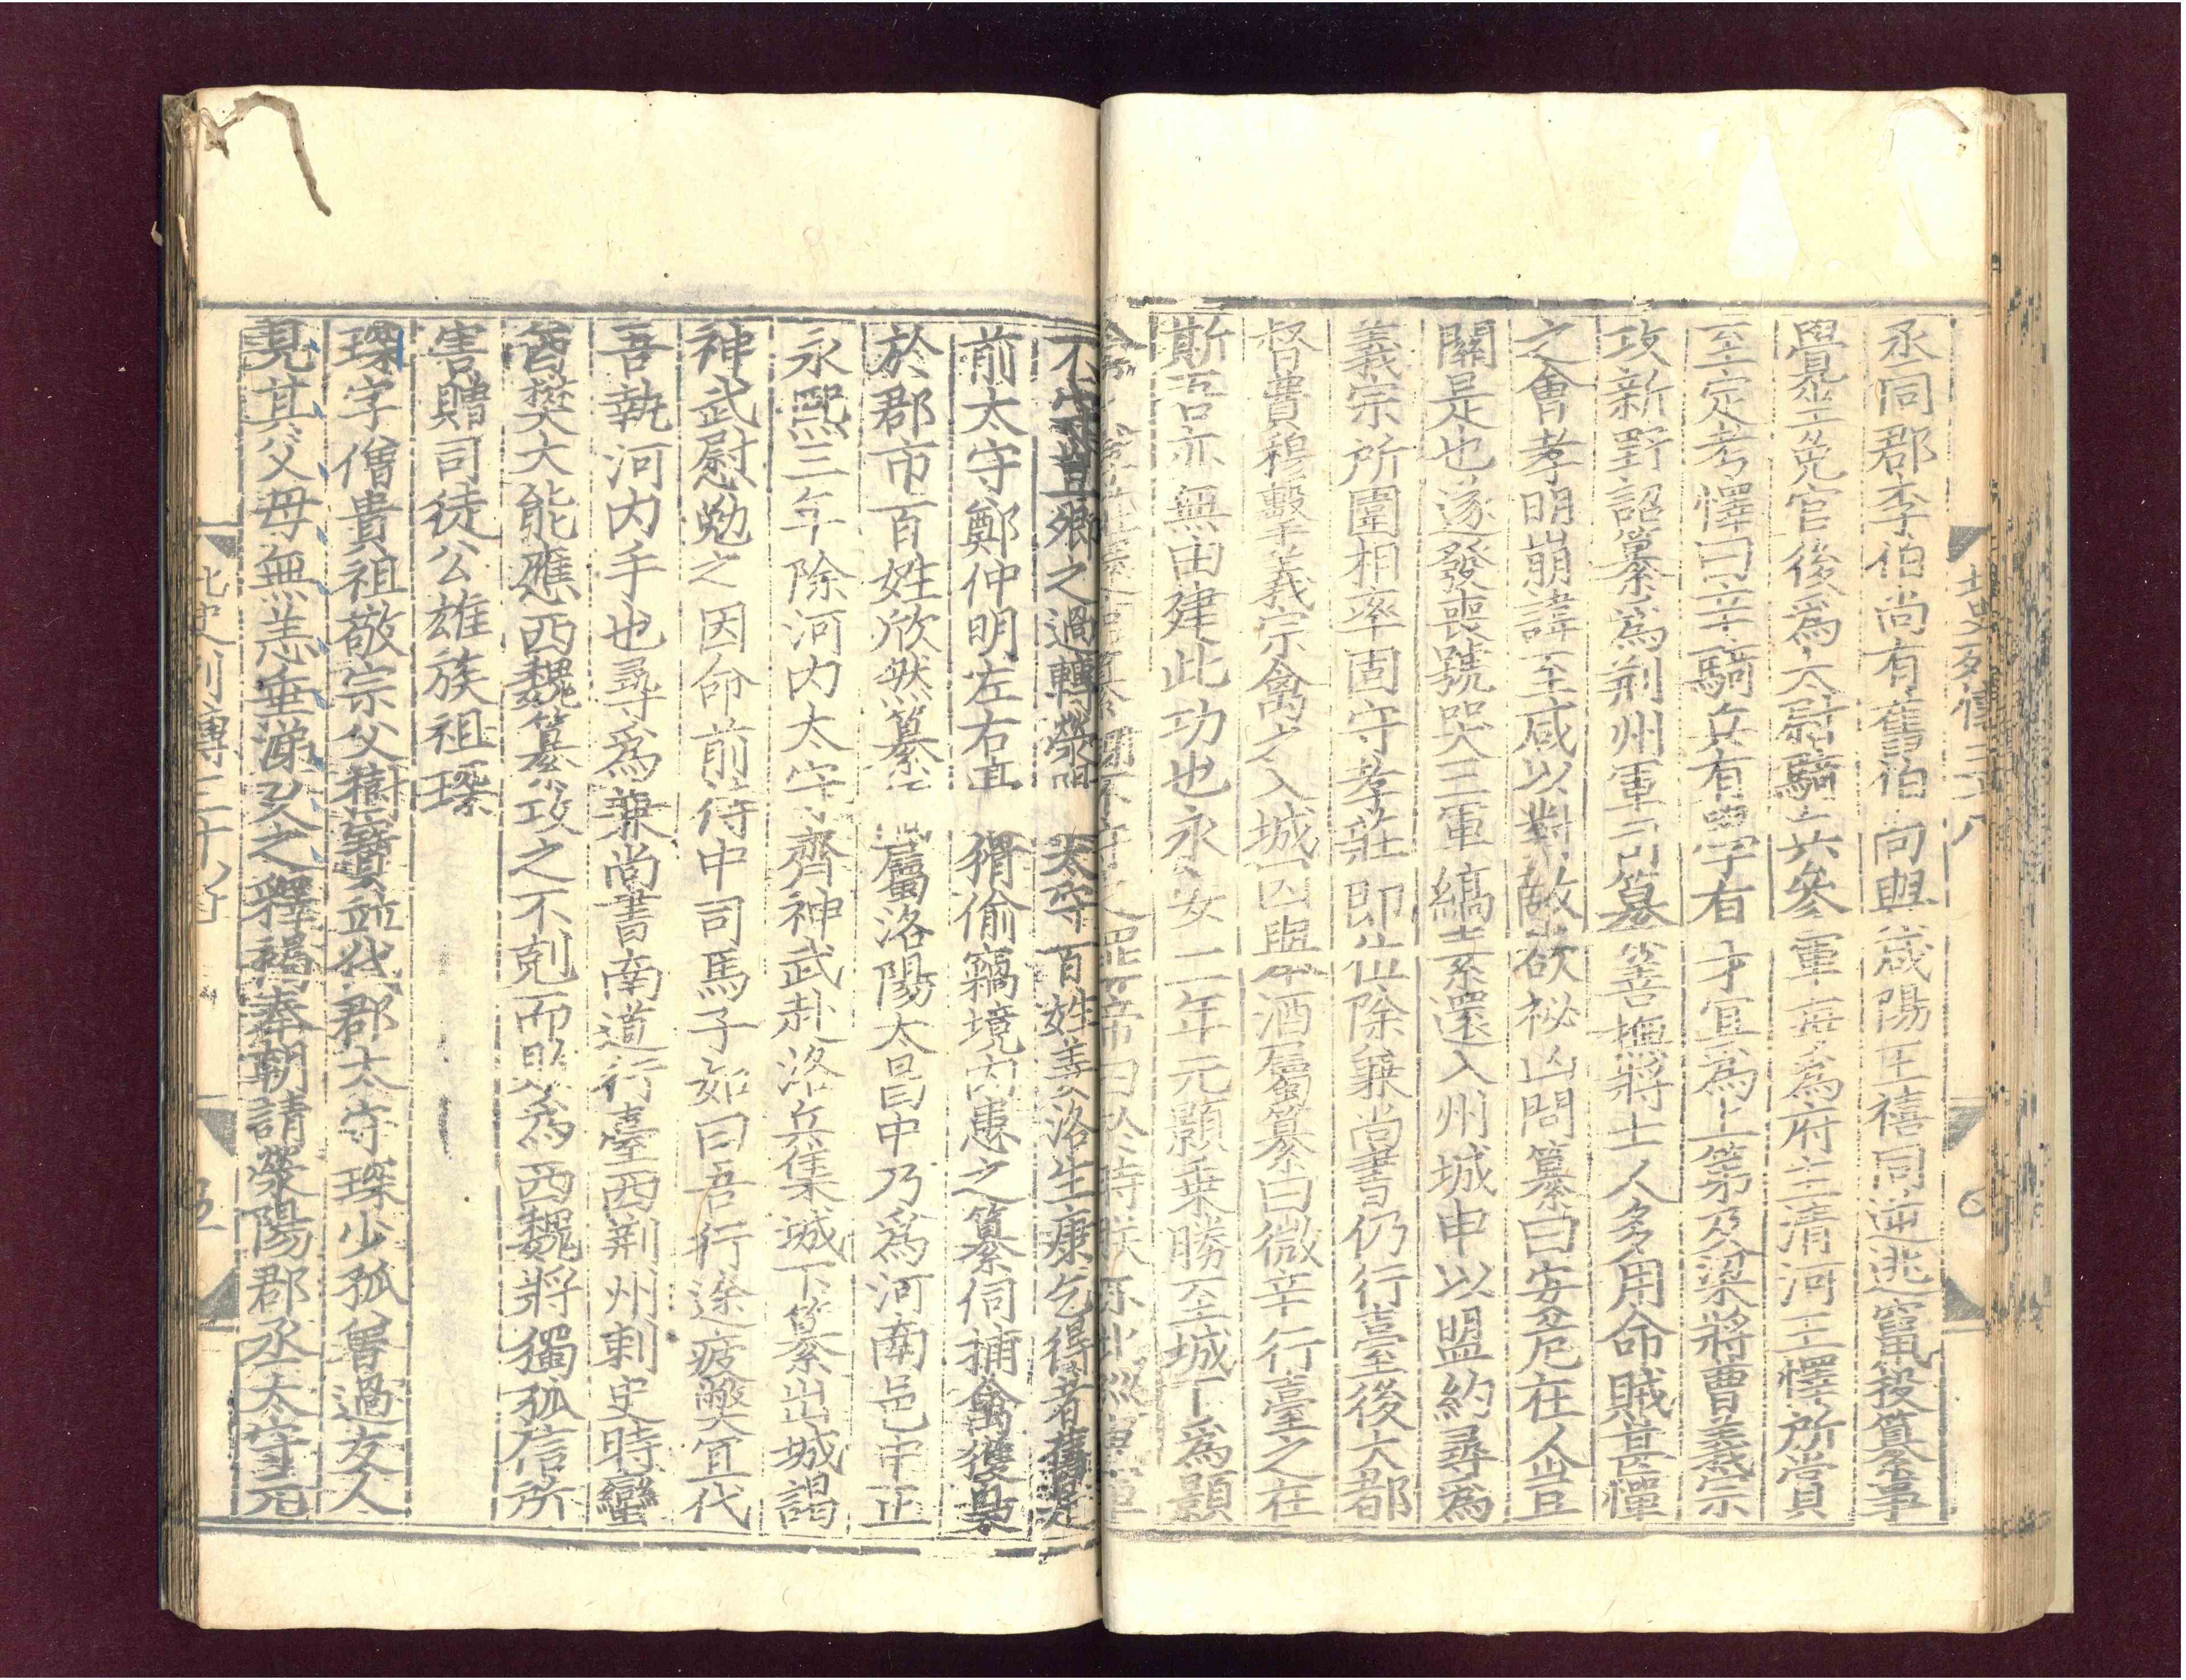 丞同郡李伯尚有舊伯尚與咸陽王禧同逆逃竄投纂事
覺坐免官後爲太尉騎兵參軍每爲府主清河王懌所賞
至定考懌曰辛騎兵有學有才宜爲上第及梁將曹義宗
攻新野詔纂爲荊州軍司纂善撫將士人多用命賊甚憚
之會孝明崩諱至咸以對敵欲祕凶問纂曰安危在人豈
關是也遂發喪號哭三軍縞素還入州城申以盟約尋爲
義宗所圍相率固守孝莊即位除兼尚書仍行臺後大都
督費穆擊義宗禽之入城因舉酒屬纂曰微辛行臺之在
斯吾亦無由建此功也永安二年元顥乗勝至城下爲顥
不守豈卿之過轉滎陽太守百姓姜洛生康乞得者舊是
前太守鄭仲明左右豪猾偷竊境内患之纂伺捕禽獲梟
於郡市百姓欣然纂 屬洛陽太昌中乃爲河南邑中正
永熙三年除河内太守齊神武赴洛兵集城下纂出城謁
神武慰勉之因命前侍中司馬子如曰吾行途疲弊宜代
吾執河内手也尋爲兼尚書南道行臺西荊州刺史時蠻
酋樊大能應西魏纂攻之不剋而敗爲西魏將獨孤信所
害贈司徒公雄族祖琛
琛字僧貴祖敬宗父樹寶並代郡太守琛少孤曽過友人
見其父母無恙垂涕久之釋褐奉朝請滎陽郡丞太守元
北史列傳三十八